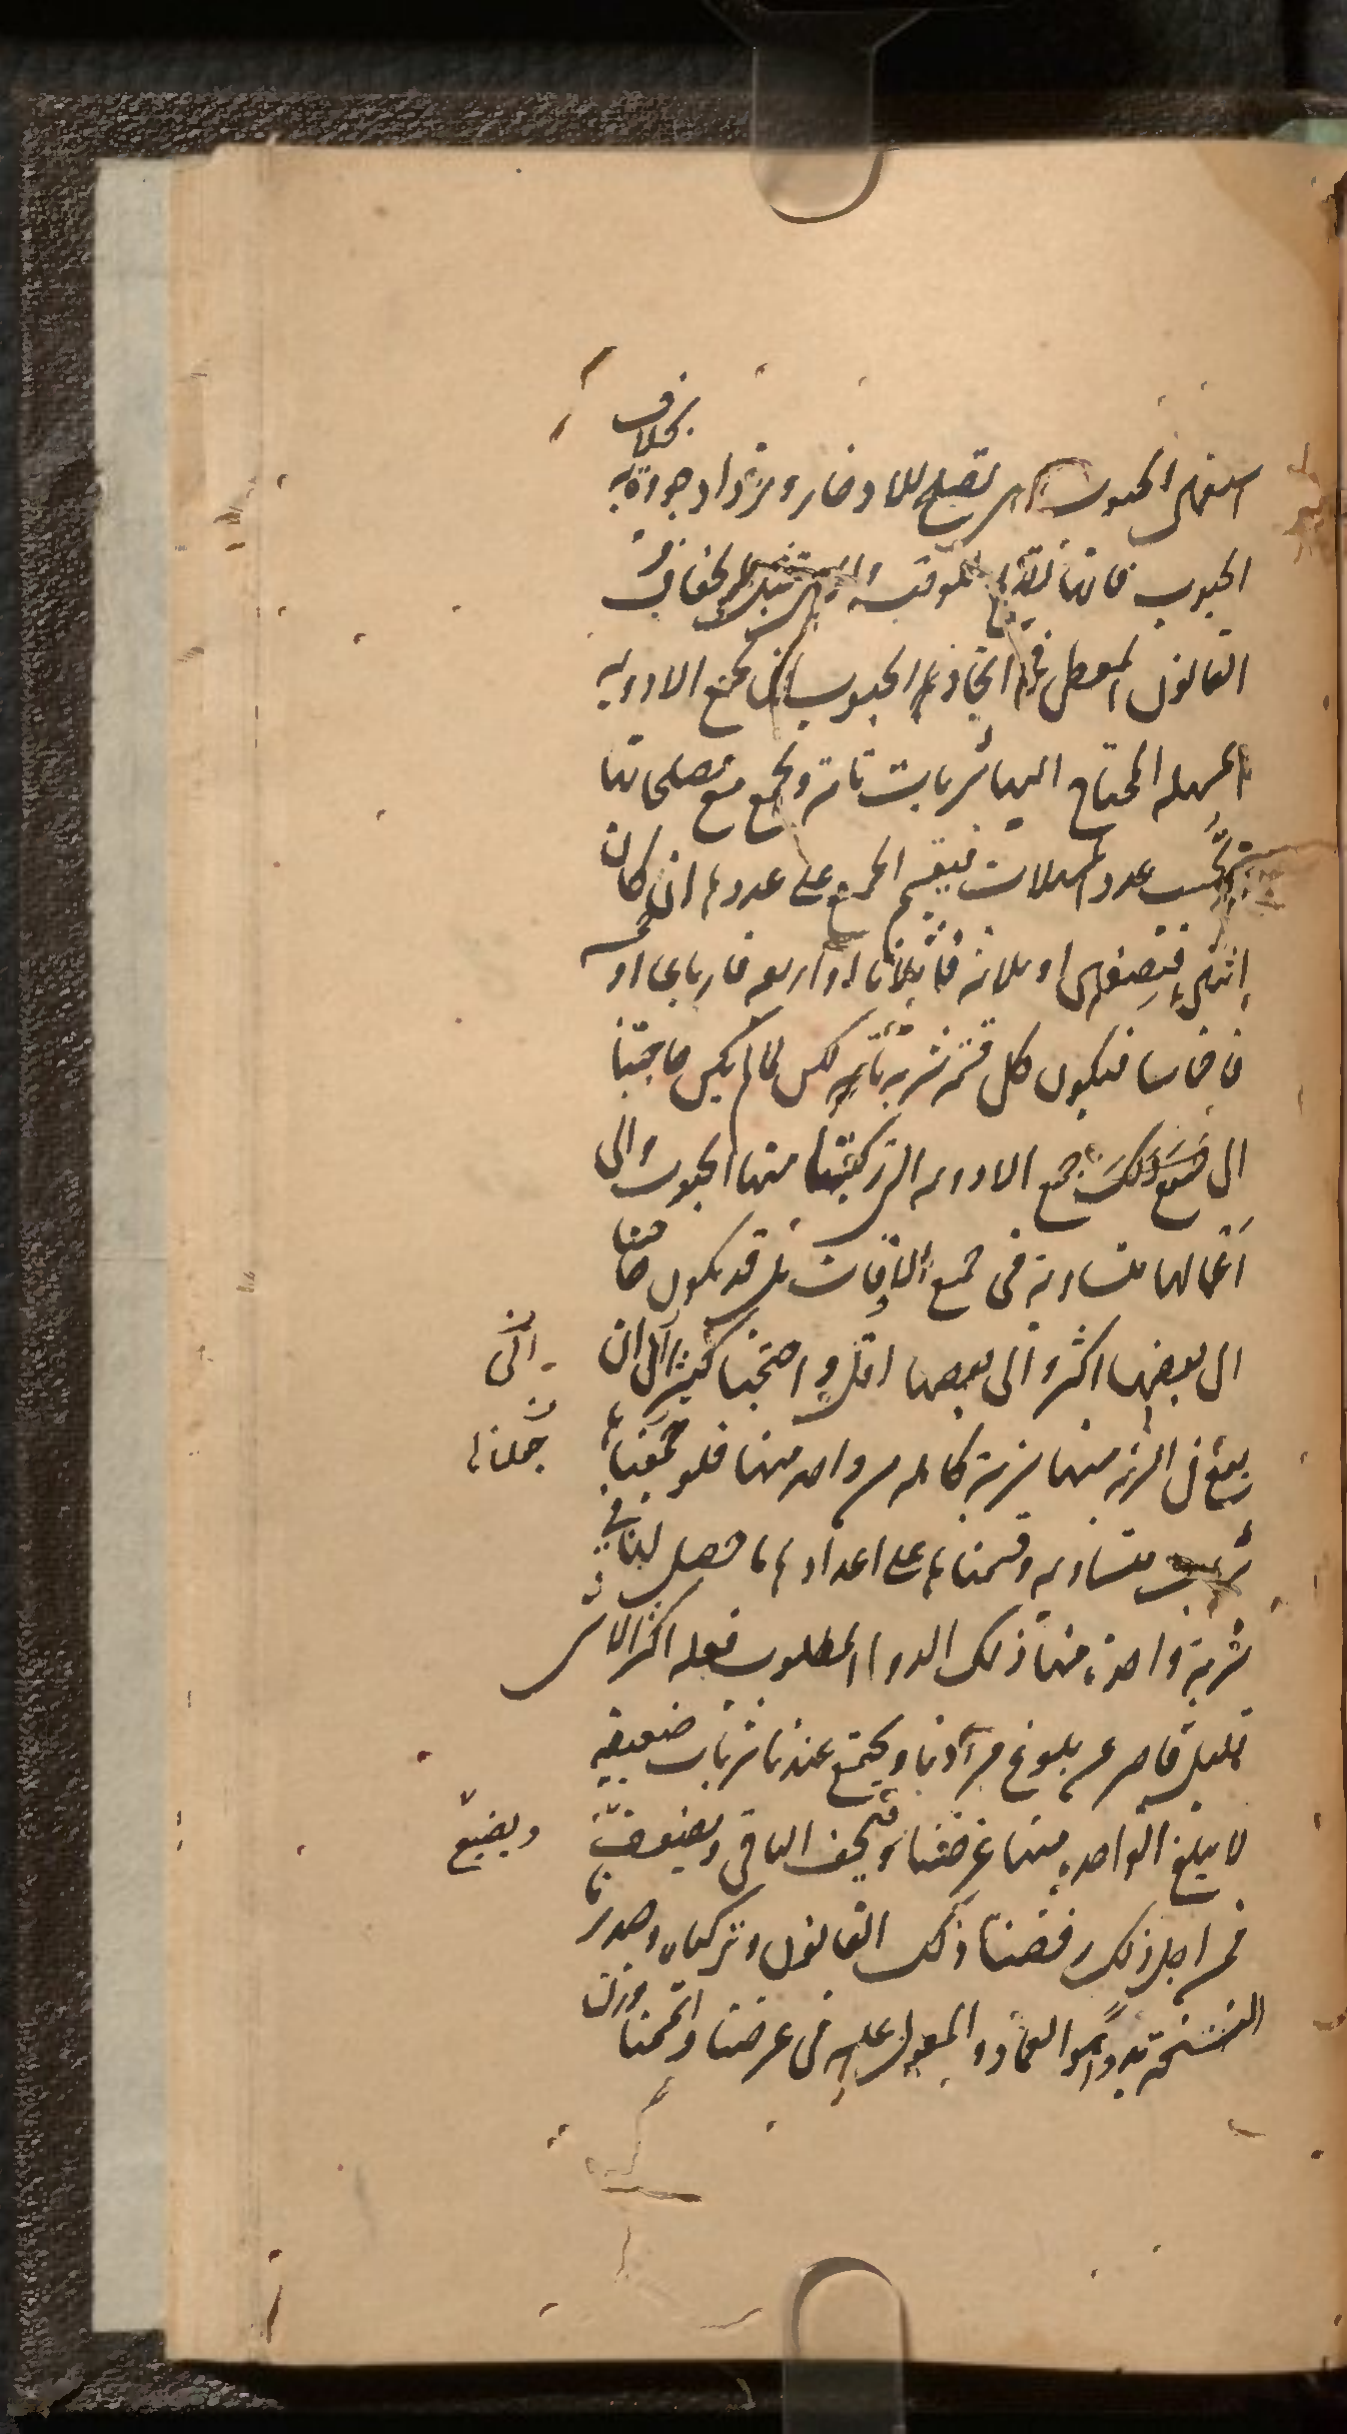 استعمالى الحبوب تصلح للادخار وتزداد جودة به بخلاف
الحبوب فانها
القانون المعطى فى اتخاذ الحبوب ان تجمع الادويه
المسهله المحتاج اليها شربات تامة وتجمع مع مصلحاتها
وتحسب عدد المسهلات فيقسم الجميع على عددها ان كان
اثنين فنصفين او ثلاثه فاثلاثا او اربعه فارباعا او خمسه
فاخماسا فيكون كل قسم شربة تامة لكن لما لم يكن حاجتنا
الى جميع الادويه التى ركبتها منها الحبوب والى
افعالها متساوية فى جميع الاوقات بل قد يكون حاجتنا
الى بعضها اكثر والى بعضها اقل واحتجنا كثيرا الى ان
يقع فى الشربة منها شربة كاملة من واحد منها فلو جمعناها
شربات متساويه وقسمناها على اعدادها ما حصل لنا فى
شربة واحدة منها ذلك الدوا المطلوب فعله اكثر الا شى
قليل قاصر عن بلوغ مرادنا ويجتمع عندنا شربات ضعيفه
لا يبلغ الواحده منها غرضنا ويجف الباقى ويضعف
فمن اجل ذلك رفضنا ذلك القانون وتركناه وصدرنا
النسخة بدوا هو العماد والمعول عليه فى غرضنا واتممنا وزن
الى
جعلناها
ويضيع